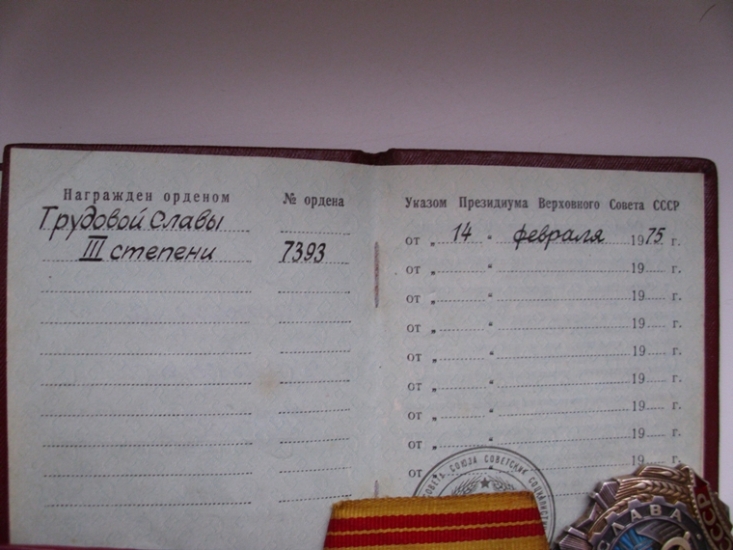 Награжден орденом
№ ордена
Трудовой Славы
III степени
7393
Указом Президиума Верховного Совета СССР
от „ 14 “ февраля 1975 г.
от „ “ 19 г.
от „ “ 19 г.
от „ “ 19 г.
от „ “ 19 г.
от „ “ 19 г.
от „ “ 19 г.
от „ “ 19 г.
от „ “ 19 г.
СОВЕТА СОЮЗА СОВЕТСКИХ
СЛАВА
СССР